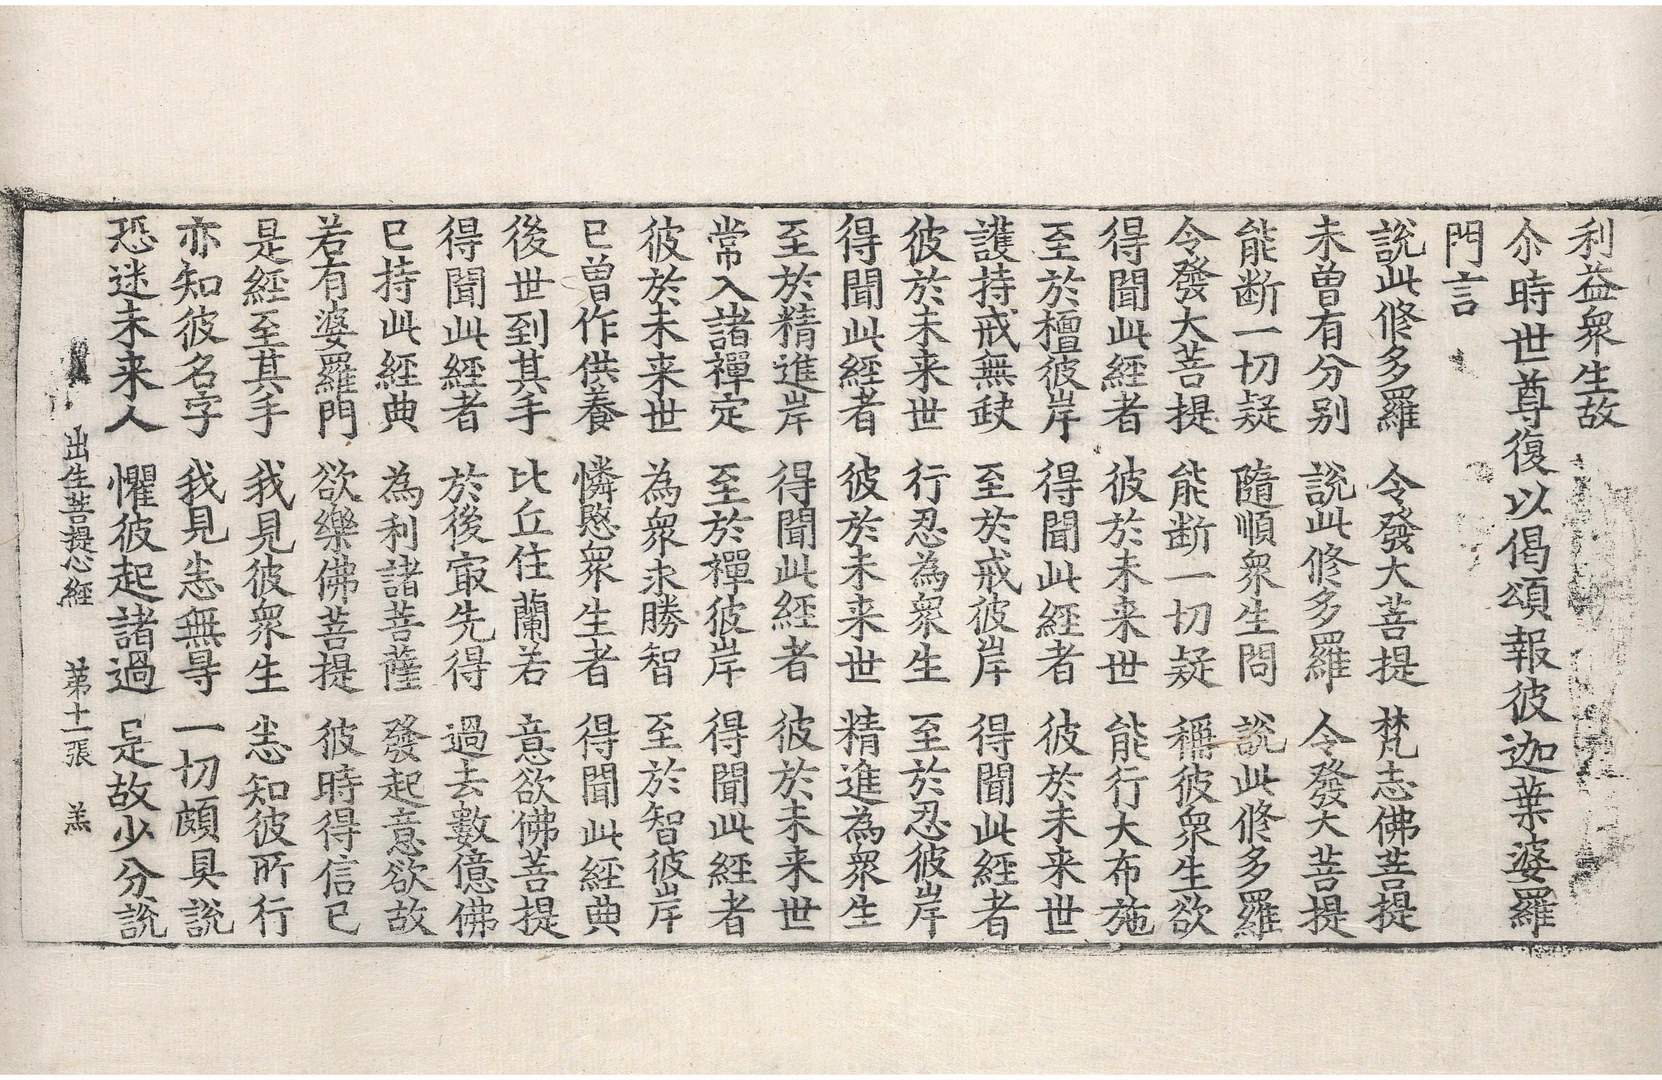 利益衆生故
尒時世尊復以偈頌報彼迦葉婆羅
門言
說此修多羅 令發大菩提 梵志佛菩提
未曽有分別 說此修多羅 令發大菩提
能斷一切疑 隨順衆生問 說此修多羅
令發大菩提 能斷一切疑 稱彼衆生欲
得聞此經者 彼於未来世 能行大布施
至於檀彼岸 得聞此經者 彼於未来世
護持戒無缺 至於戒彼岸 得聞此經者
彼於未来世 行忍為衆生 至於忍彼岸
得聞此經者 彼於未来世 精進為衆生
至於精進岸 得聞此經者 彼於未来世
常入諸禪定 至於禪彼岸 得聞此經者
彼於未来世 為衆求勝智 至於智彼岸
已曽作供養 憐愍衆生者 得聞此經典
後世到其手 比丘住蘭若 意欲佛菩提
得聞此經者 於後㝡先得 過去數億佛
已持此經典 為利諸菩薩 發起意欲故
若有婆羅門 欲樂佛菩提 彼時得信已
是經至其手 我見彼衆生 悉知彼所行
亦知彼名字 我見悉無㝵 一切頗具說
恐迷未来人 懼彼起諸過 是故少分說
出生菩提心經 第十一張 羔